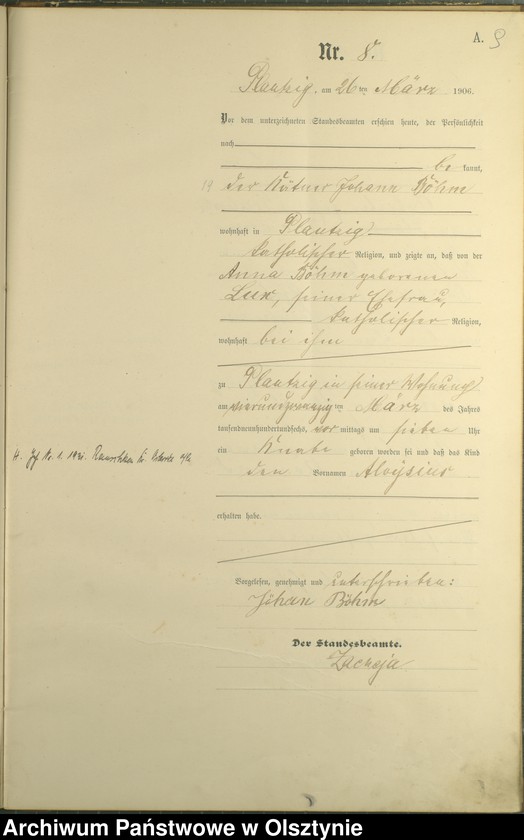 A. 9
Nr. 8.
Plautzig, am 26ten März 1906.
Vor dem unterzeichneten Standesbeamten erschien heute, der Persönlichkeit
nach
be kannt,
der Kätner Johann Böhm
wohnhaft in Plautzig
katholischer Religion, und zeigte an, daß von der
Anna Böhm geborenen
Lux, seiner Ehefrau,
katholischer Religion,
wohnhaft bei ihm
zu Plautzig in seiner Wohnung
am vierundzwanzigten März des Jahres
tausendneunhundertundsechs, vor mittags um sieben Uhr
ein Knabe geboren worden sei und daß das Kind
den Vornamen Aloysius
erhalten habe.
Vorgelesen, genehmigt und unterschrieben:
Johan Böhm
Der Standesbeamte.
H. Nr.
Archiwum Państwowe w Olsztynie